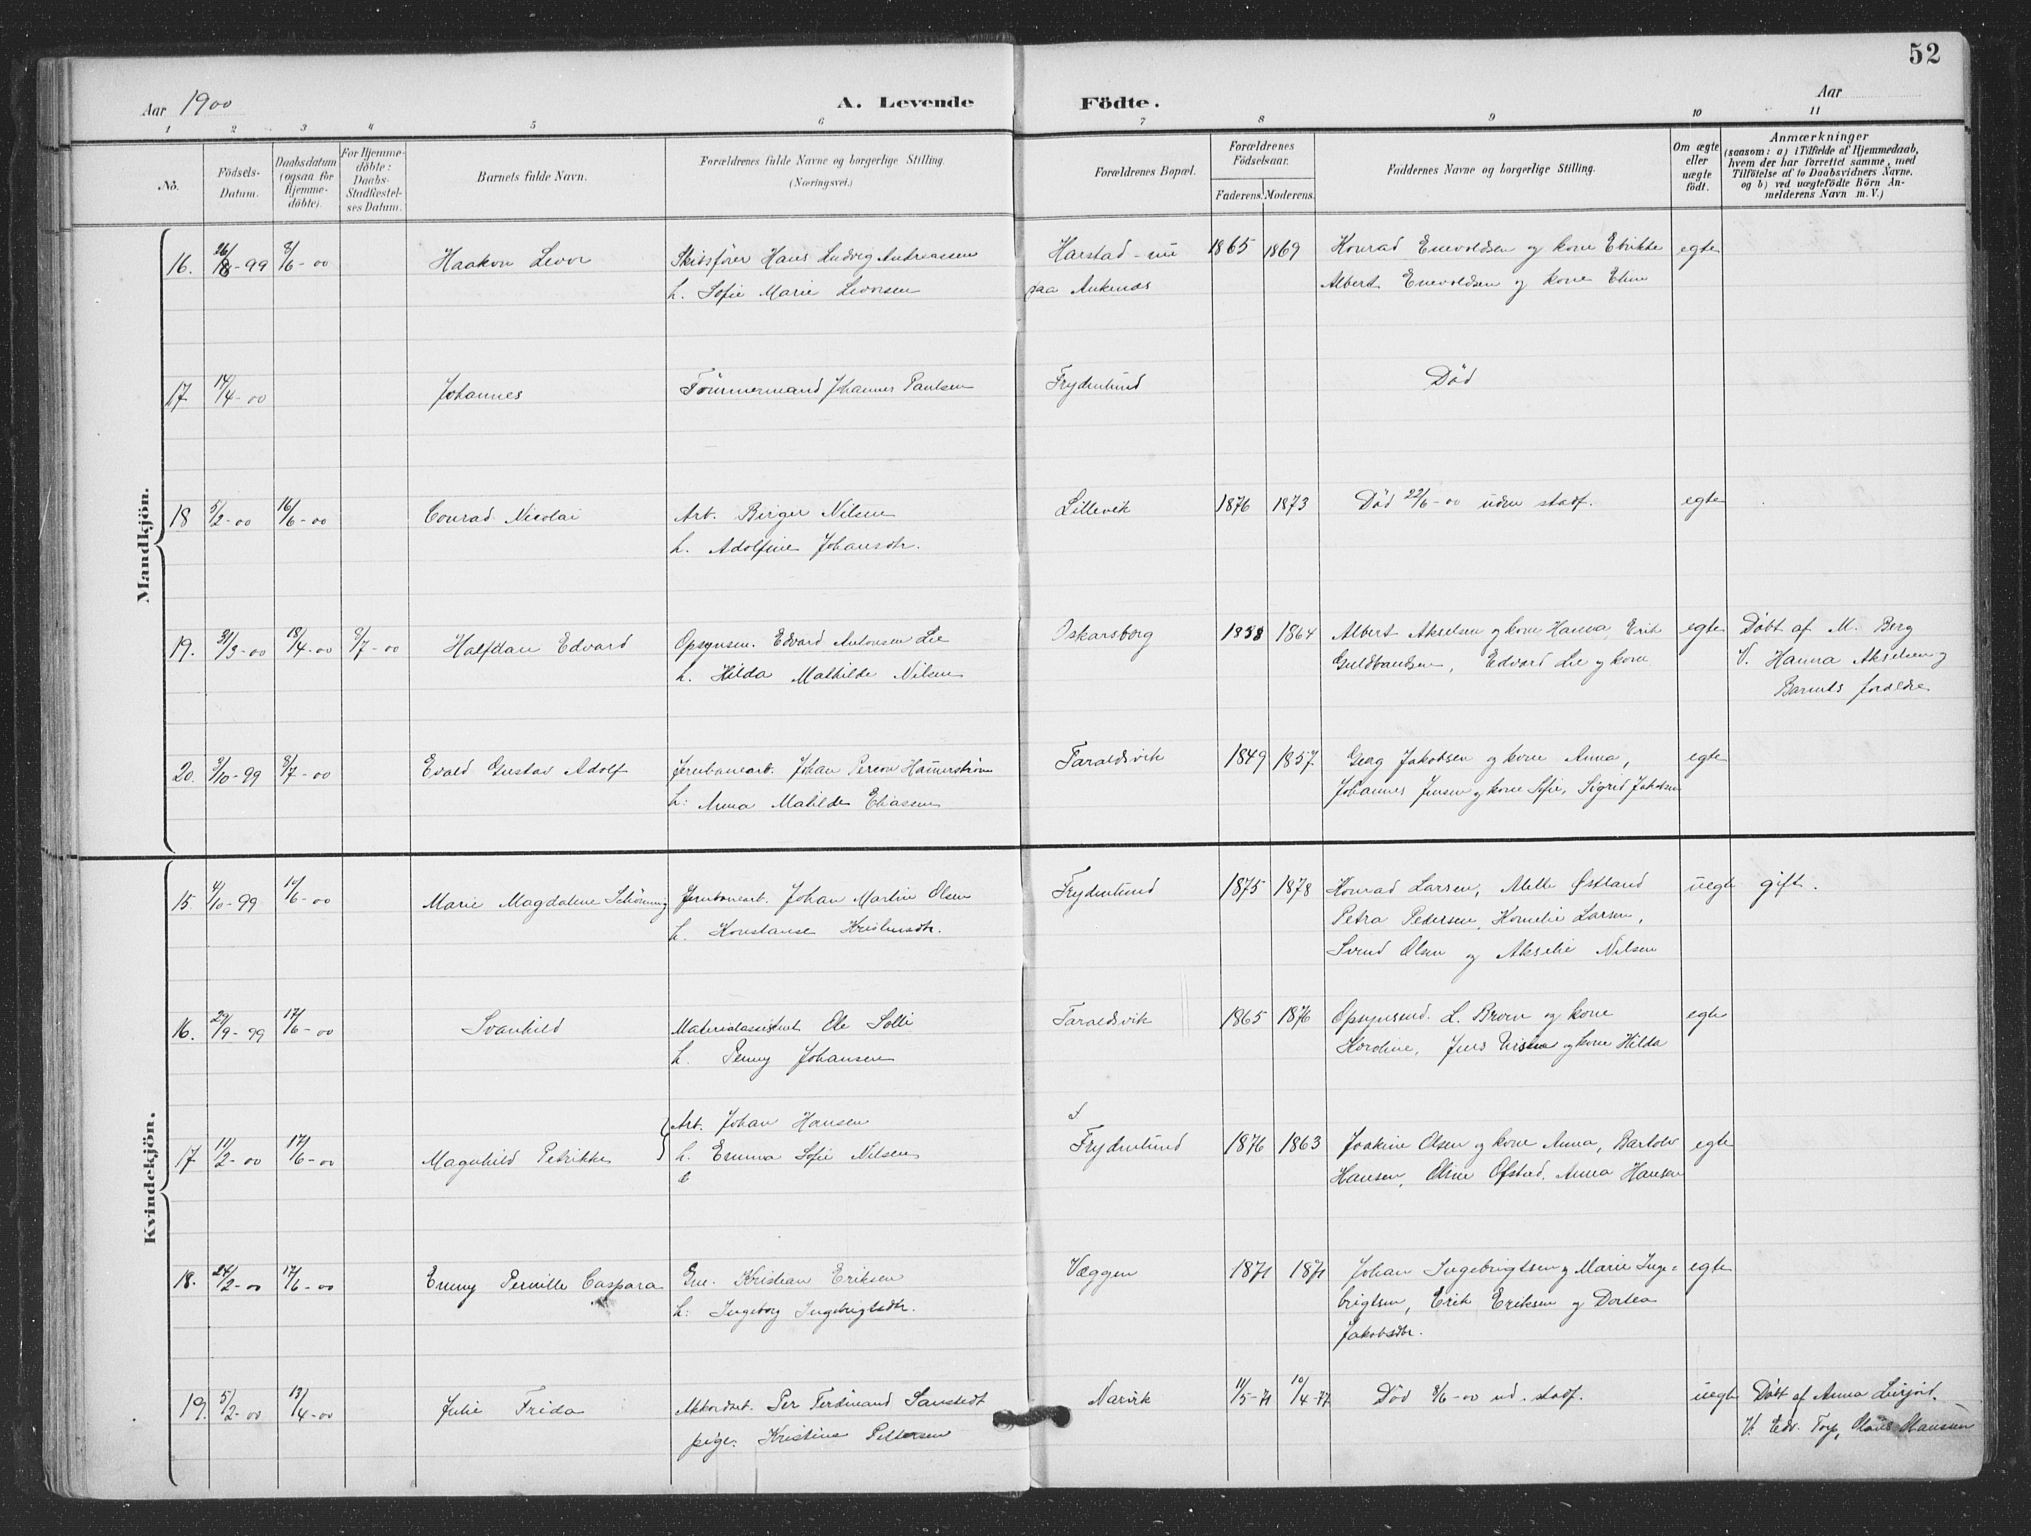 52
Aar 1900
A. Levende Födte.
Aar
1 2 3 4 5 6 7 8 9 10 11
No.
Födsels-Datum.
Daabsdatum (ogsaa for Hjemmedöbte).
For Hjemmedöbte: Daabs-Stadfæstelses Datum.
Barnets fulde Navn.
Forældrenes fulde Navne og borgerlige Stilling. (Næringsvei.)
Forældrenes Bopæl.
Forældrenes Födselsaar.
Faderens. Moderens.
Faddernes Navne og borgerlige Stilling.
Om ægte eller uægte födt.
Anmærkninger
(saasom: a) i Tilfælde af Hjemmedaab, hvem der har forrettet samme, med Tilföielse af to Daabsvidners Navne. og b) ved uægtefödte Börn Anmelderens Navn m. V.)
Mandkjön.
16. 26/8-99 8/6-00 Haakon Levor Skibsfører Hans Ludvig Andreassen Harstad - nu 1865 1869 Konrad Enevoldsen og kone Erikke egte
h. Sofie Marie Levorsen paa Ankenes Albert Enevoldsen og kone Eline
17 17/4-00 Johannes Tømmermand Johannes Paulsen Frydenlund Død
18 5/2-00 16/6-00 Conrad Nicolai Arb. Birger Nilsen Lillevik 1876 1873 Død 22/6-00 uden stadf. egte
h. Adolfine Johansdtr.
19. 31/3-00 18/4-00 8/7-00 Halfdan Edvard Opsynsm. Edvard Antonsen Lie Oskarsborg 1858 1864 Albert Akselsen og kone Hanna, Erik egte Døbt af M. Berg
h. Hilda Mathilde Nilsen Guldbandsen, Edvard Lie og kone V. Hanna Akselsen og
Barnets forældre
20. 9/10-99 8/7-00 Evald Gustav Adolf Jernbanearb. Johan Person Hammerstrøm Taraldsvik 1849 1857 Georg Jakobsen og kone Anna, egte
h. Anna Matilde Eliassen Johannes Jensen og kone Sofie, Sigrid Jakobsen
Kvindekjön.
15 4/10-99 10/6-00 Marie Magdalene Schönning Jernbanearb. Johan Martin Olsen Frydenlund 1875 1878 Konrad Larsen, Mette Østland uegte gift.
h. Konstanse Kristensdtr. Petra Pedersen, Kornelie Larsen,
Svend Olsen og Akselie Nilsen
16. 29/9-99 17/6-00 Svanhild Materialassistent Ole Solli Taraldsvik 1865 1876 Opsynsmd. L. Broen og kone egte
h. Penny Johansen Karoline, Jens kone Hilda
17 11/2-00 17/6-00 Magnhild Petrikke Arb. Johan Hansen Frydenlund 1876 1863 Joakim Olsen og kone Anna, Bartolo egte
h. Emma Sofie Nilsen Hansen, Oline Ofstad, Anna Hansen
18. 24/2-00 17/6-00 Emmy Pernille Caspara Gm. Kristian Eriksen Væggen 1871 1871 Johan Ingebrigtsen og Marie Inge- egte
h. Ingeborg Ingebrigtsdtr. brigtsen, Erik Eriksen og Dortea
Jakobsdtr.
19. 5/2-00 13/4-00 Julie Frida Akkordarb. Per Ferdinand Sanstedt Narvik 11/5-71 10/4-77 Død 8/6-00 ud. stadf. uegte Døbt af Anna
pige. Kristine Pettersen V. Edv. Torp, Olaus Hansen